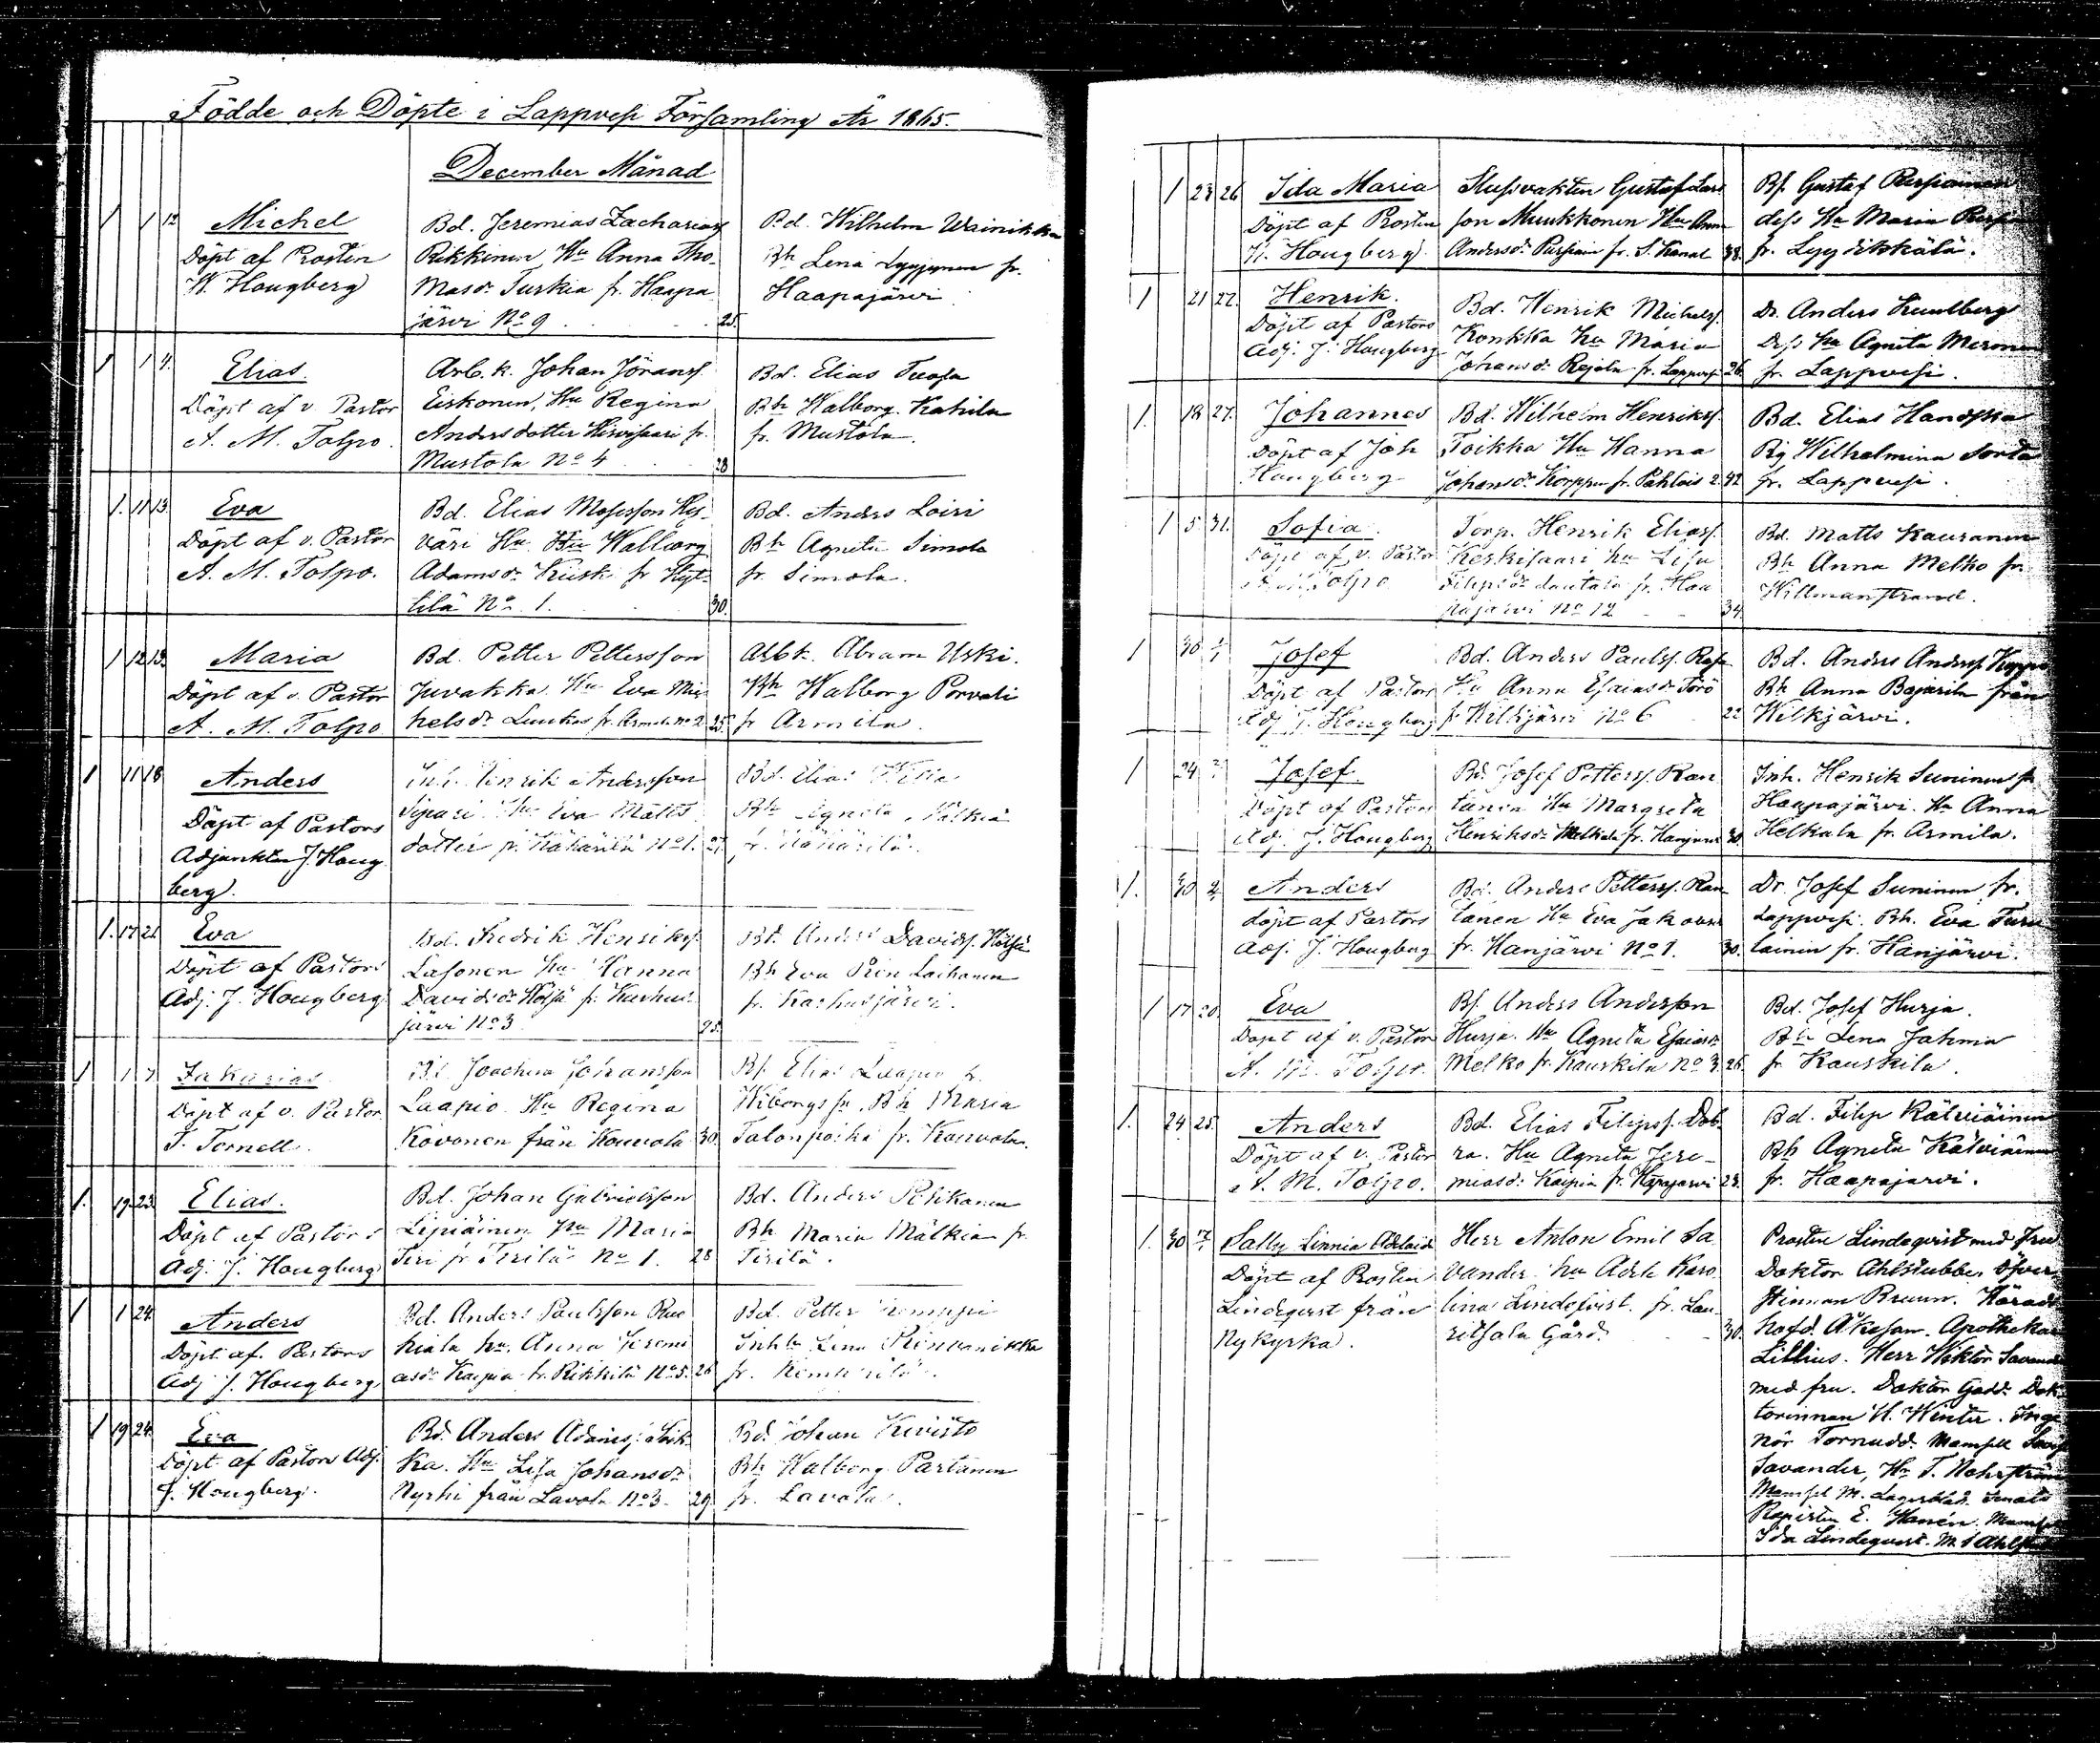 Födde och Döpte i Lappvesi Församling År 1865.
December Månad
1 1 12 Michel
Döpt af Prosten
W. Hougberg
Bd. Jeremias Zachariass.
Rikkinen, Hu Anna Tho-
masdr Turkia fr. Haapa
järvi No 9 25.
Bd. Wilhelm Wainikka
Bh Lena Lyyjynen fr.
Haapajärvi
1 1 4. Elias.
Döpt af v Pastor
A. M. Tolpo.
Arb.k. Johan Jöranss.
Eiskonen, Hu Regina
Andersdotter Hirvisaari fr.
Mustola No 4 28
Bd. Elias Tuosa
Bh Walborg Kahila
fr. Mustola.
1. 11 13. Eva
Döpt af v. Pastor
A. M. Tolpo.
Bd. Elias Mosesson Hy-
väri Hu Walborg
Adamsdr Kiiski fr Hyt-
tilä No 1. 30.
Bd. Anders Loiri
Bh Agneta Simola
fr. Simola.
1 12 13. Maria
Döpt af v. Pastor
A. M. Tolpo
Bd. Petter Pettersson
Juvakka. Hu Eva Mic-
helsdr Luukas fr. Armila No 2 25.
Arbk. Abram Uski.
Bh Walborg Porvali
fr Armila.
1 11 18. Anders
Döpt af Pastors
Adjunkten J. Houg
berg.
Inh. Henrik Andersson
Sipari Hu Eva Matts
dotter fr. Kähärilä No 1. 27.
Bd. Elias
Bh Agneta Mälkiä
fr. Kähärilä.
1. 17 21 Eva
Döpt af Pastors
Adj. J. Hougberg
Bd. Fredrik Henrikss.
Lasonen Hu Hanna
Davidsdr Hölsä fr. Karhus-
järvi No 3 25.
Bd. Anders Davidss. Hölsä
Bh Eva Laihanen
fr. Karhusjärvi.
1 1 7 Zakarias
Döpt af v. Pastor
T. Tornell.
Bd. Joachim Johansson
Laapio Hu Regina
Kovonen från Kouvola 30.
Bs. Elias Laapio fr.
Wiborgs sn. Bh Maria
Talonpoika fr. Kouvola.
1. 19. 23. Elias.
Döpt af Pastors
Adj. J. Hougberg
Bd. Johan Gabrielsson
Lipiäinen Hu Maria
Tiri fr Tirilä No 1. 28
Bd. Anders Pitkänen
Bh Maria Mälkiä fr.
Tirilä.
1 1 24. Anders
Döpt af Pastors
Adj J. Hougberg
Bd. Anders Paulsson Rau
hiala Hu. Anna Jeremi
asdr Kaipia fr. Rikkilä No 5. 26
Bd. Petter Kemppi
Inhk Lena
fr. Kemppilä.
1 19 24. Eva
Döpt af Pastors Adj.
J. Hougberg.
Bd. Anders Adamss. Soik
ka. Hu Lisa Johansdr
Nyrhi från Lavola No 3. 29.
Bd. Johan Kivistö
Bh Walborg Partanen
fr. Lavola.
1 23 26 Ida Maria
Döpt af Prosten
W. Hougberg
Slussvakten Gustaf Lars
son Muukkonen Hu Anna
Andersdr Pursiain fr. S. Kanal 38.
Bs. Gustaf
dess Hu Maria
fr. Lyydikkälä.
1 21 22. Henrik.
Döpt af Pastors
Adj. J. Hougberg
Bd. Henrik Michelss.
Konkka Hu Maria
Johansdr Rejola fr. Lappvesi 26.
Dr. Anders Krunberg
Dess hu Agneta Meronen
fr. Lappvesi.
1. 18 27. Johannes
Döpt af Joh
Hougberg
Bd. Wilhelm Henrikss.
Toikka Hu Hanna
Johansdr Korppi fr. Pahlois 2. 42
Bd. Elias Hanoska
Pig Wilhelmina Sorta
fr. Lappvesi.
1 5 31. Sofia.
Döpt af v. Pastor
A. M. Tolpo
Torp. Henrik Eliass.
Keskisaari hu Lisa
Filipsdr Lautala fr. Haa
pajärvi No 12 34.
Bd. Matts Kauranen
Bh Anna Melko fr.
Willmanstrand.
1 30 1/1 Josef
Döpt af Pastors
Adj J. Hougberg
Bd. Anders Paulss. Rasa
Hu Anna Esaiasdr Törö
fr Wilkjärvi No 6 22
Bd. Anders Anderss. Kyppö
Bh Anna Bajarila från
Wilkjärvi.
1 24 Josef.
Döpt af Pastors
Adj. J. Hougberg
Bd. Josef Petterss. Ran
tanen Hu Margreta
Henriksdr Melkala fr. Hanjärvi 30.
Inh. Henrik Suninen fr
Haapajärvi. Hu Anna
Helkala fr. Armila.
1. 30 Anders
Döpt af Pastors
Adj. J. Hougberg
Bd. Anders Petterss. Ran
tanen Hu Eva Jakobs
fr. Hanjärvi No 1. 30.
Dr. Josef Suninen fr.
Lappvesi. Bh. Eva Turu
lainen fr. Hanjärvi.
1 17 20. Eva
Döpt af v. Pastor
A. M. Tolpo.
Bs. Anders Andersson
Hurja. Hu Agneta Esaiasdr
Melko fr. Kauskila No 3. 26.
Bd. Josef Hurja.
Bh Lena Jahma
fr Kauskila.
1. 24. 25. Anders
Döpt af v. Pastor
A. M. Tolpo.
Bd. Elias Filipss. Dob-
ra. Hu Agneta Jere-
miasdr Kaipia fr. Haapajärvi 23.
Bd. Filip Kätviäinen
Bh Agneta Kätviäinen
fr. Haapajärvi.
1. 30 Sally Linnia Adelaid
Döpt af Prosten
Lindeqvist från
Nykyrka.
Herr Anton Emil Sa
vander hu Adele Karo
lina Lindeqvist. fr. Lau
ritsala Gård. 30.
Prosten Lindeqvist med Fru
Doktor Ahlstubbe. Öfver-
stinnan Bruun. Härads
höfd. Åkesson. Apothekar
Lillius. Herr Wiktor Savander
med fru. Doktor Gadd. Dok
torinnan H. Winter. Inge
niör Tornudd. Mamsell
Savander, Hr T. Nohrström
Mamsel M. Lagerblad.
E. Hanén.
Ida Lindeqvist.